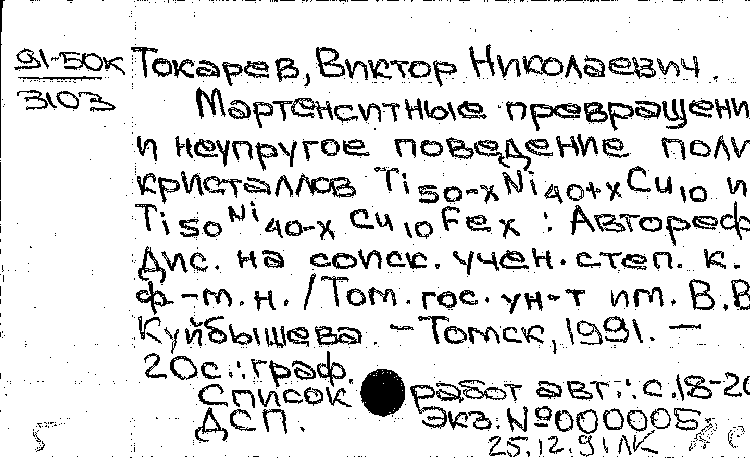 91-50к Токарев, Виктор Николаевич.
3103 Мартенситные превращени
и неупругое поведение поли
кристаллов Ti50-xNi40+xCu10 и
Ti50Ni40-xCu10Fex : Автореф
дис. на соиск. учен. степ. к.
ф.-м. н. / Том. гос. ун-т им. В.В
Куйбышева. - Томск, 1991. -
20с.: граф.
Список работ авт.: с.18-20
ДСП. Экз. №000005
25.12.91 ЛК